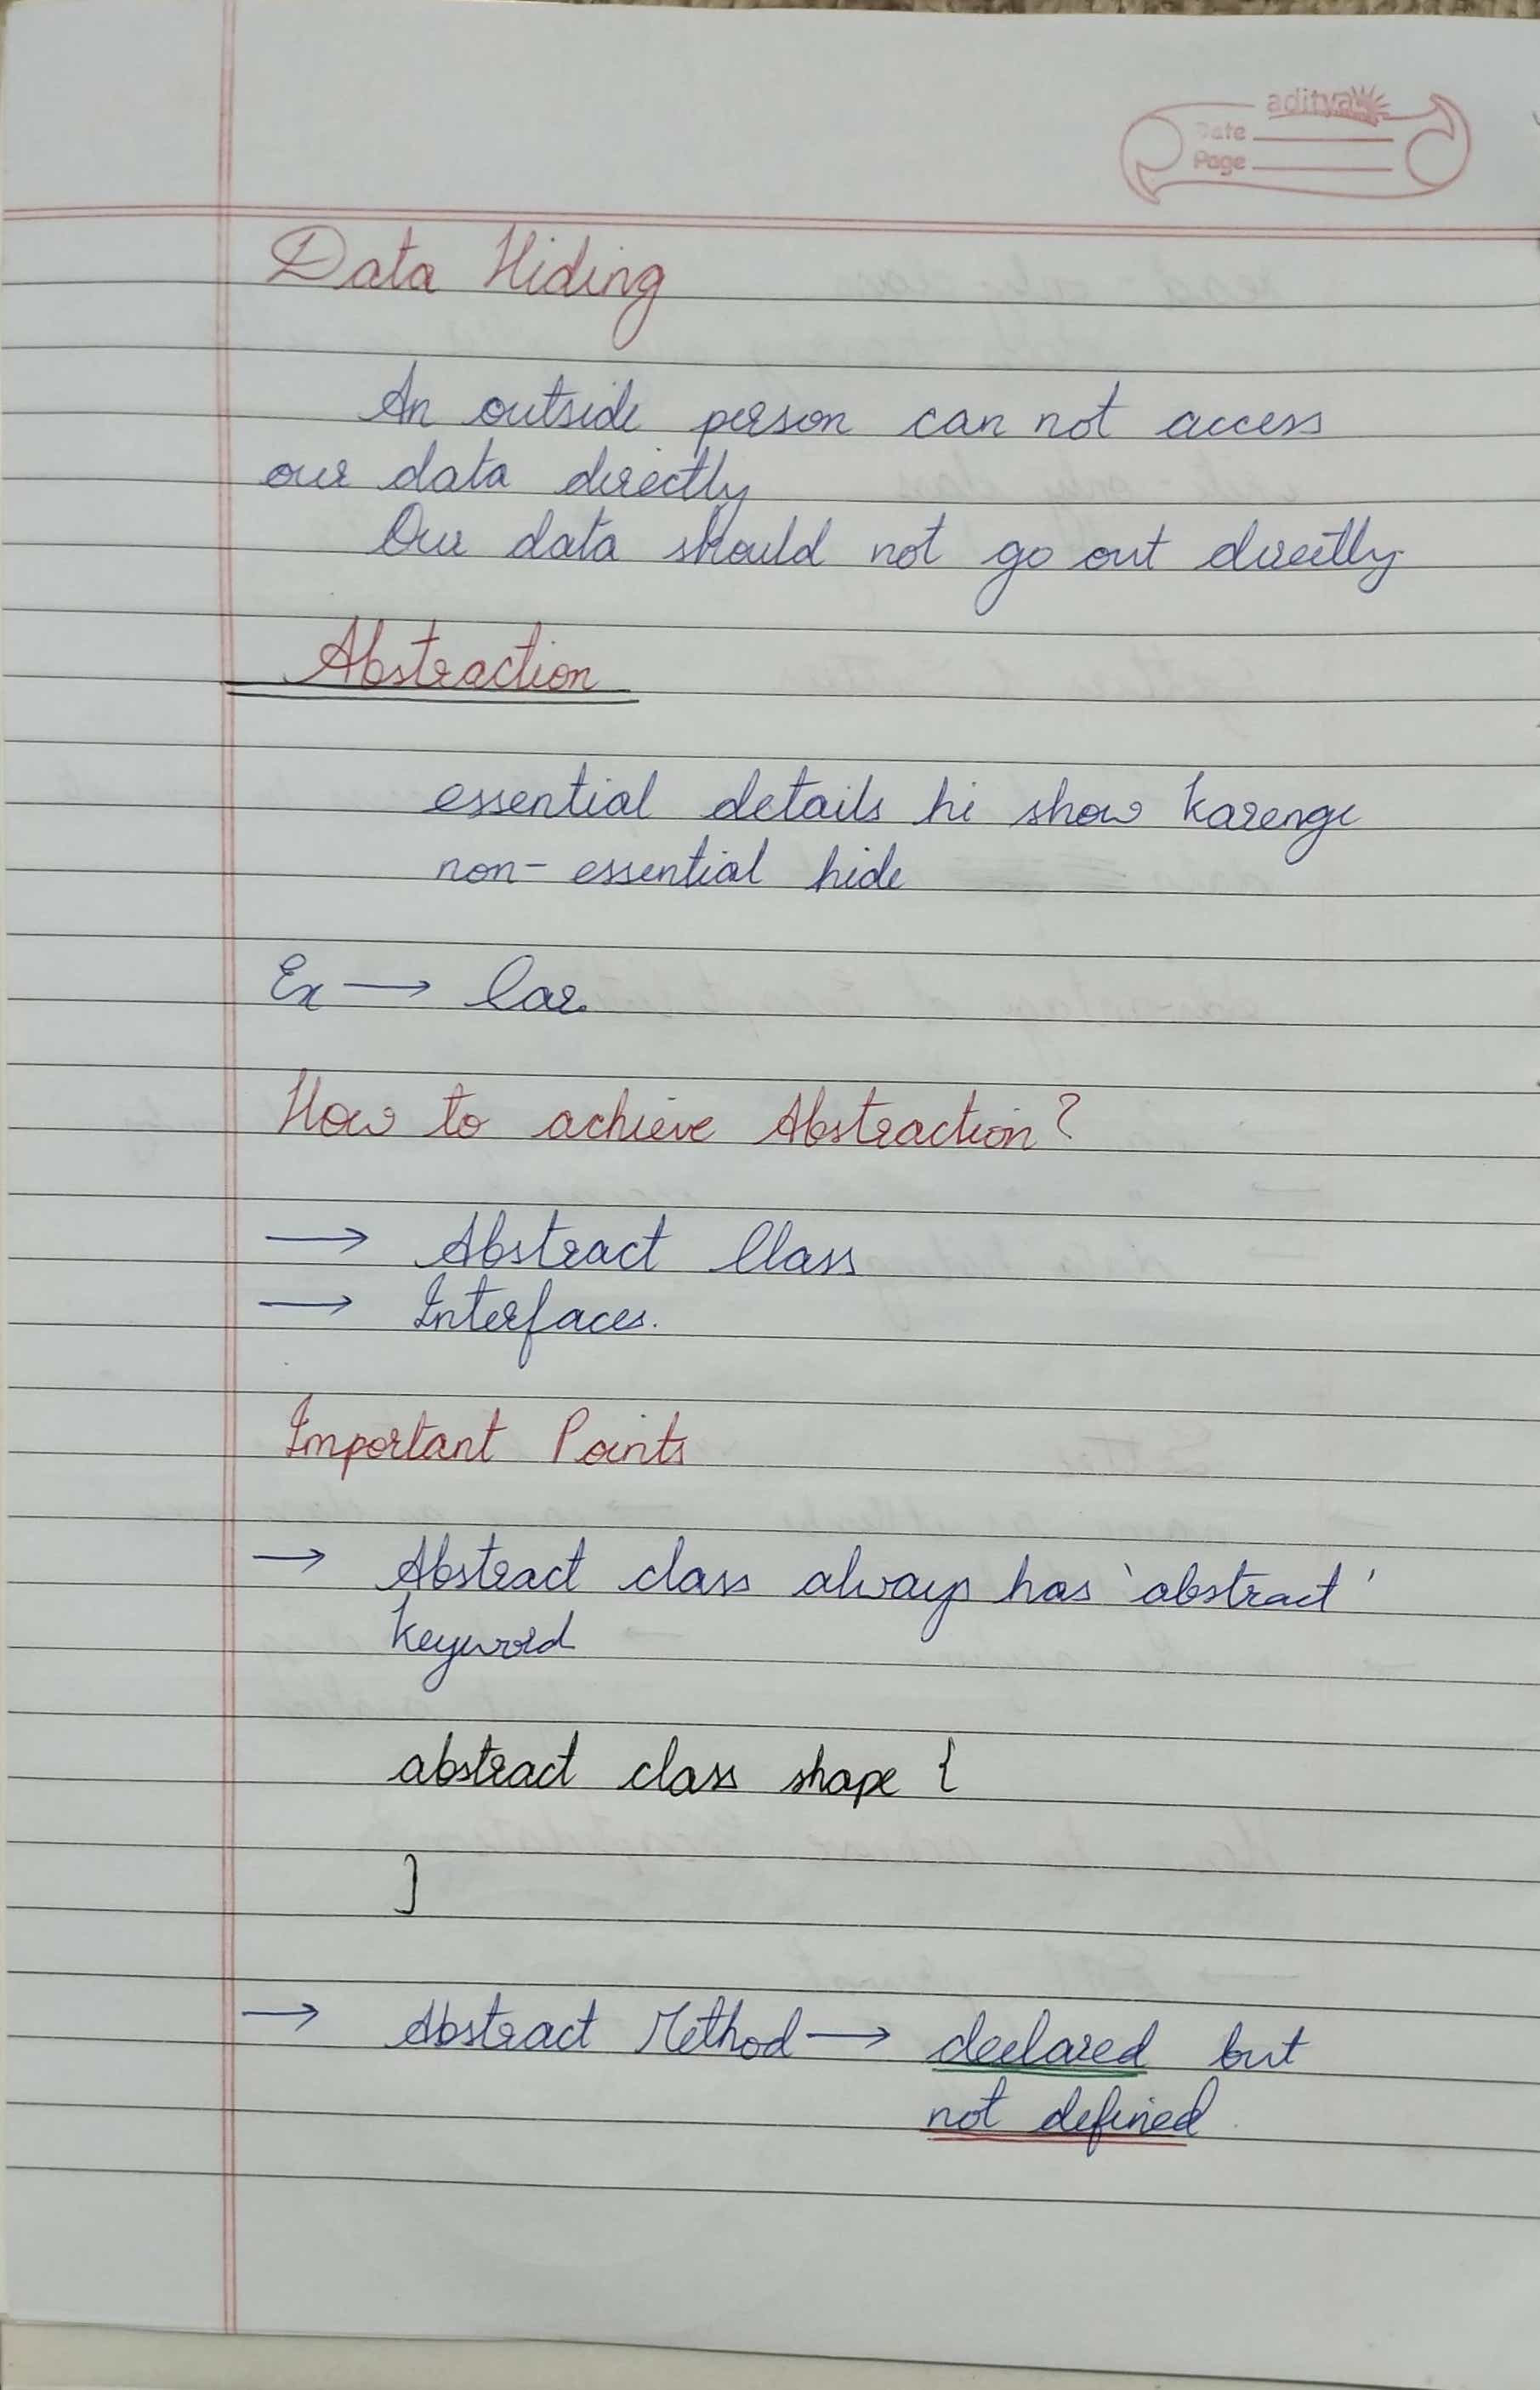 aditya
Date
Page
Data Hiding
An outside person can not access
our data directly
Our data should not go out directly
Abstraction
essential details hi show karenge
non-essential hide
Ex → Car
How to achieve Abstraction?
→ Abstract Class
→ Interfaces.
Important Points
→ Abstract class always has 'abstract'
keyword
abstract class shape {
}
→ Abstract Method → declared but
not defined